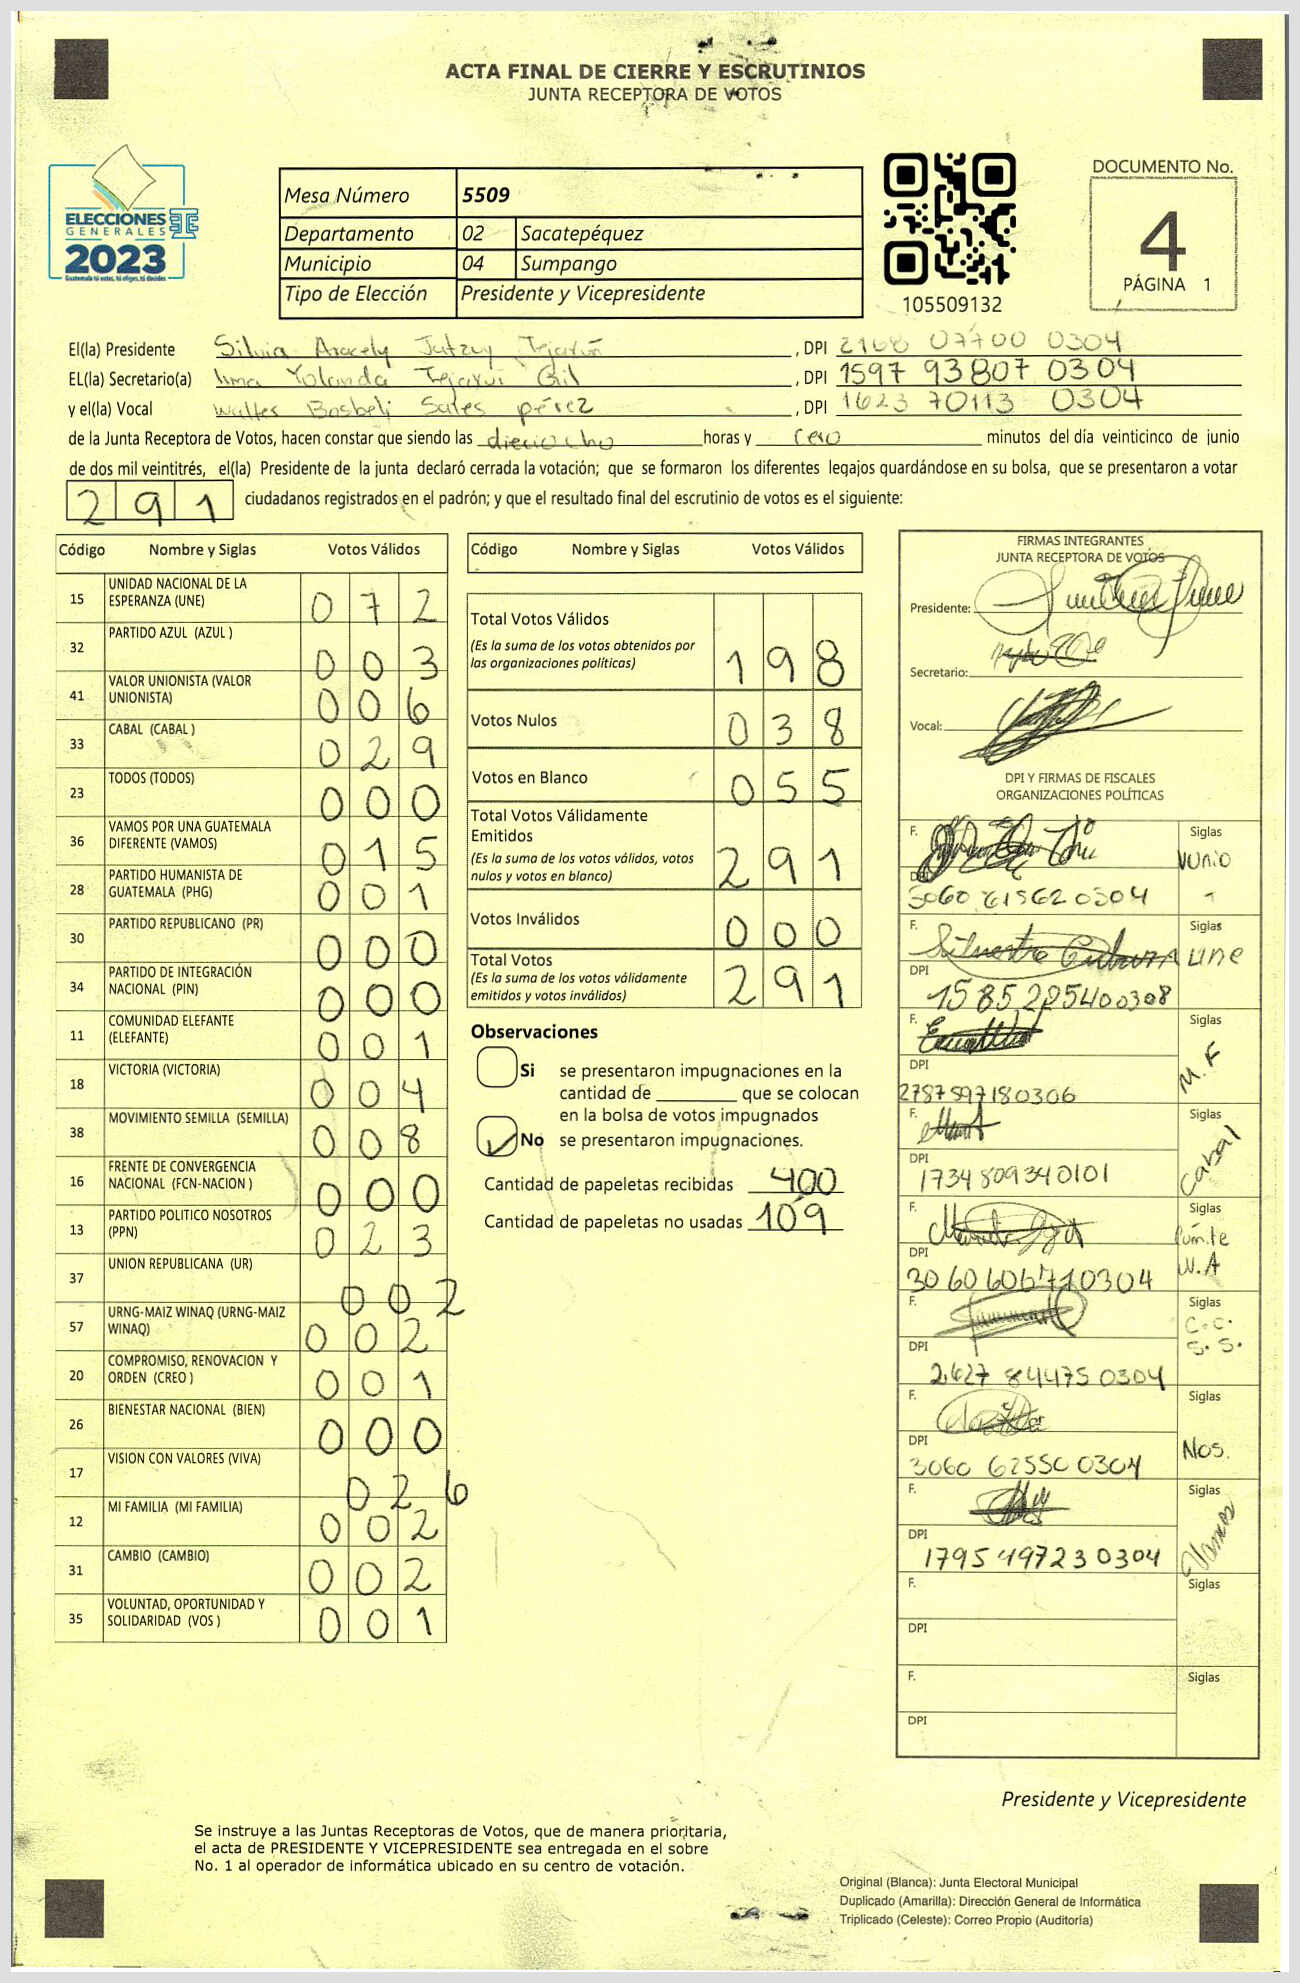 ACTA FINAL DE CIERRE Y ESCRUTINIOS
JUNTA RECEPTORA DE VOTOS
ELECCIONES
GENERALES
2023
Guatemala tú votas, tú eliges, tú decides
Mesa Número 5509
Departamento 02 Sacatepéquez
Municipio 04 Sumpango
Tipo de Elección Presidente y Vicepresidente
105509132
DOCUMENTO No.
4
PÁGINA 1
El(la) Presidente Silvia Aracely , DPI 2168 07700 0304
EL(la) Secretario(a) Irma Yolanda Gil , DPI 1597 93807 0304
y el(la) Vocal Walter Bosbeli Sales pérez , DPI 1623 70113 0304
de la Junta Receptora de Votos, hacen constar que siendo las dieciocho horas y cero minutos del día veinticinco de junio
de dos mil veintitrés, el(la) Presidente de la junta declaró cerrada la votación; que se formaron los diferentes legajos guardándose en su bolsa, que se presentaron a votar
291 ciudadanos registrados en el padrón; y que el resultado final del escrutinio de votos es el siguiente:
Código Nombre y Siglas Votos Válidos
15 UNIDAD NACIONAL DE LA ESPERANZA (UNE) 072
32 PARTIDO AZUL (AZUL ) 003
41 VALOR UNIONISTA (VALOR UNIONISTA) 006
33 CABAL (CABAL ) 029
23 TODOS (TODOS) 000
36 VAMOS POR UNA GUATEMALA DIFERENTE (VAMOS) 015
28 PARTIDO HUMANISTA DE GUATEMALA (PHG) 001
30 PARTIDO REPUBLICANO (PR) 000
34 PARTIDO DE INTEGRACIÓN NACIONAL (PIN) 000
11 COMUNIDAD ELEFANTE (ELEFANTE) 001
18 VICTORIA (VICTORIA) 004
38 MOVIMIENTO SEMILLA (SEMILLA) 008
16 FRENTE DE CONVERGENCIA NACIONAL (FCN-NACION ) 000
13 PARTIDO POLITICO NOSOTROS (PPN) 023
37 UNION REPUBLICANA (UR) 002
57 URNG-MAIZ WINAQ (URNG-MAIZ WINAQ) 002
20 COMPROMISO, RENOVACION Y ORDEN (CREO ) 001
26 BIENESTAR NACIONAL (BIEN) 000
17 VISION CON VALORES (VIVA) 026
12 MI FAMILIA (MI FAMILIA) 002
31 CAMBIO (CAMBIO) 002
35 VOLUNTAD, OPORTUNIDAD Y SOLIDARIDAD (VOS ) 001
Código Nombre y Siglas Votos Válidos
Total Votos Válidos 198
(Es la suma de los votos obtenidos por
las organizaciones políticas)
Votos Nulos 038
Votos en Blanco 055
Total Votos Válidamente
Emitidos 291
(Es la suma de los votos válidos, votos
nulos y votos en blanco)
Votos Inválidos 000
Total Votos 291
(Es la suma de los votos válidamente
emitidos y votos inválidos)
Observaciones
Si se presentaron impugnaciones en la
cantidad de ________ que se colocan
en la bolsa de votos impugnados
No se presentaron impugnaciones.
Cantidad de papeletas recibidas 400
Cantidad de papeletas no usadas 109
FIRMAS INTEGRANTES
JUNTA RECEPTORA DE VOTOS
Presidente:
Secretario:
Vocal:
DPI Y FIRMAS DE FISCALES
ORGANIZACIONES POLÍTICAS
F. Siglas
DPI 3060 61562 0304
F. Siglas
UNE
DPI 1585 22540 0308
F. Siglas
M.F
DPI 2787597180306
F. Siglas
Cabal
DPI 1734 80934 0101
F. Siglas
W.A
DPI 3060 60671 0304
F. Siglas
C.C.
S.S.
DPI 2627 84475 0304
F. Siglas
Nos.
DPI 3060 62550 0304
F. Siglas
Vamos
DPI 1795 49723 0304
F. Siglas
DPI
F. Siglas
DPI
Presidente y Vicepresidente
Se instruye a las Juntas Receptoras de Votos, que de manera prioritaria,
el acta de PRESIDENTE Y VICEPRESIDENTE sea entregada en el sobre
No. 1 al operador de informática ubicado en su centro de votación.
Original (Blanca): Junta Electoral Municipal
Duplicado (Amarilla): Dirección General de Informática
Triplicado (Celeste): Correo Propio (Auditoría)